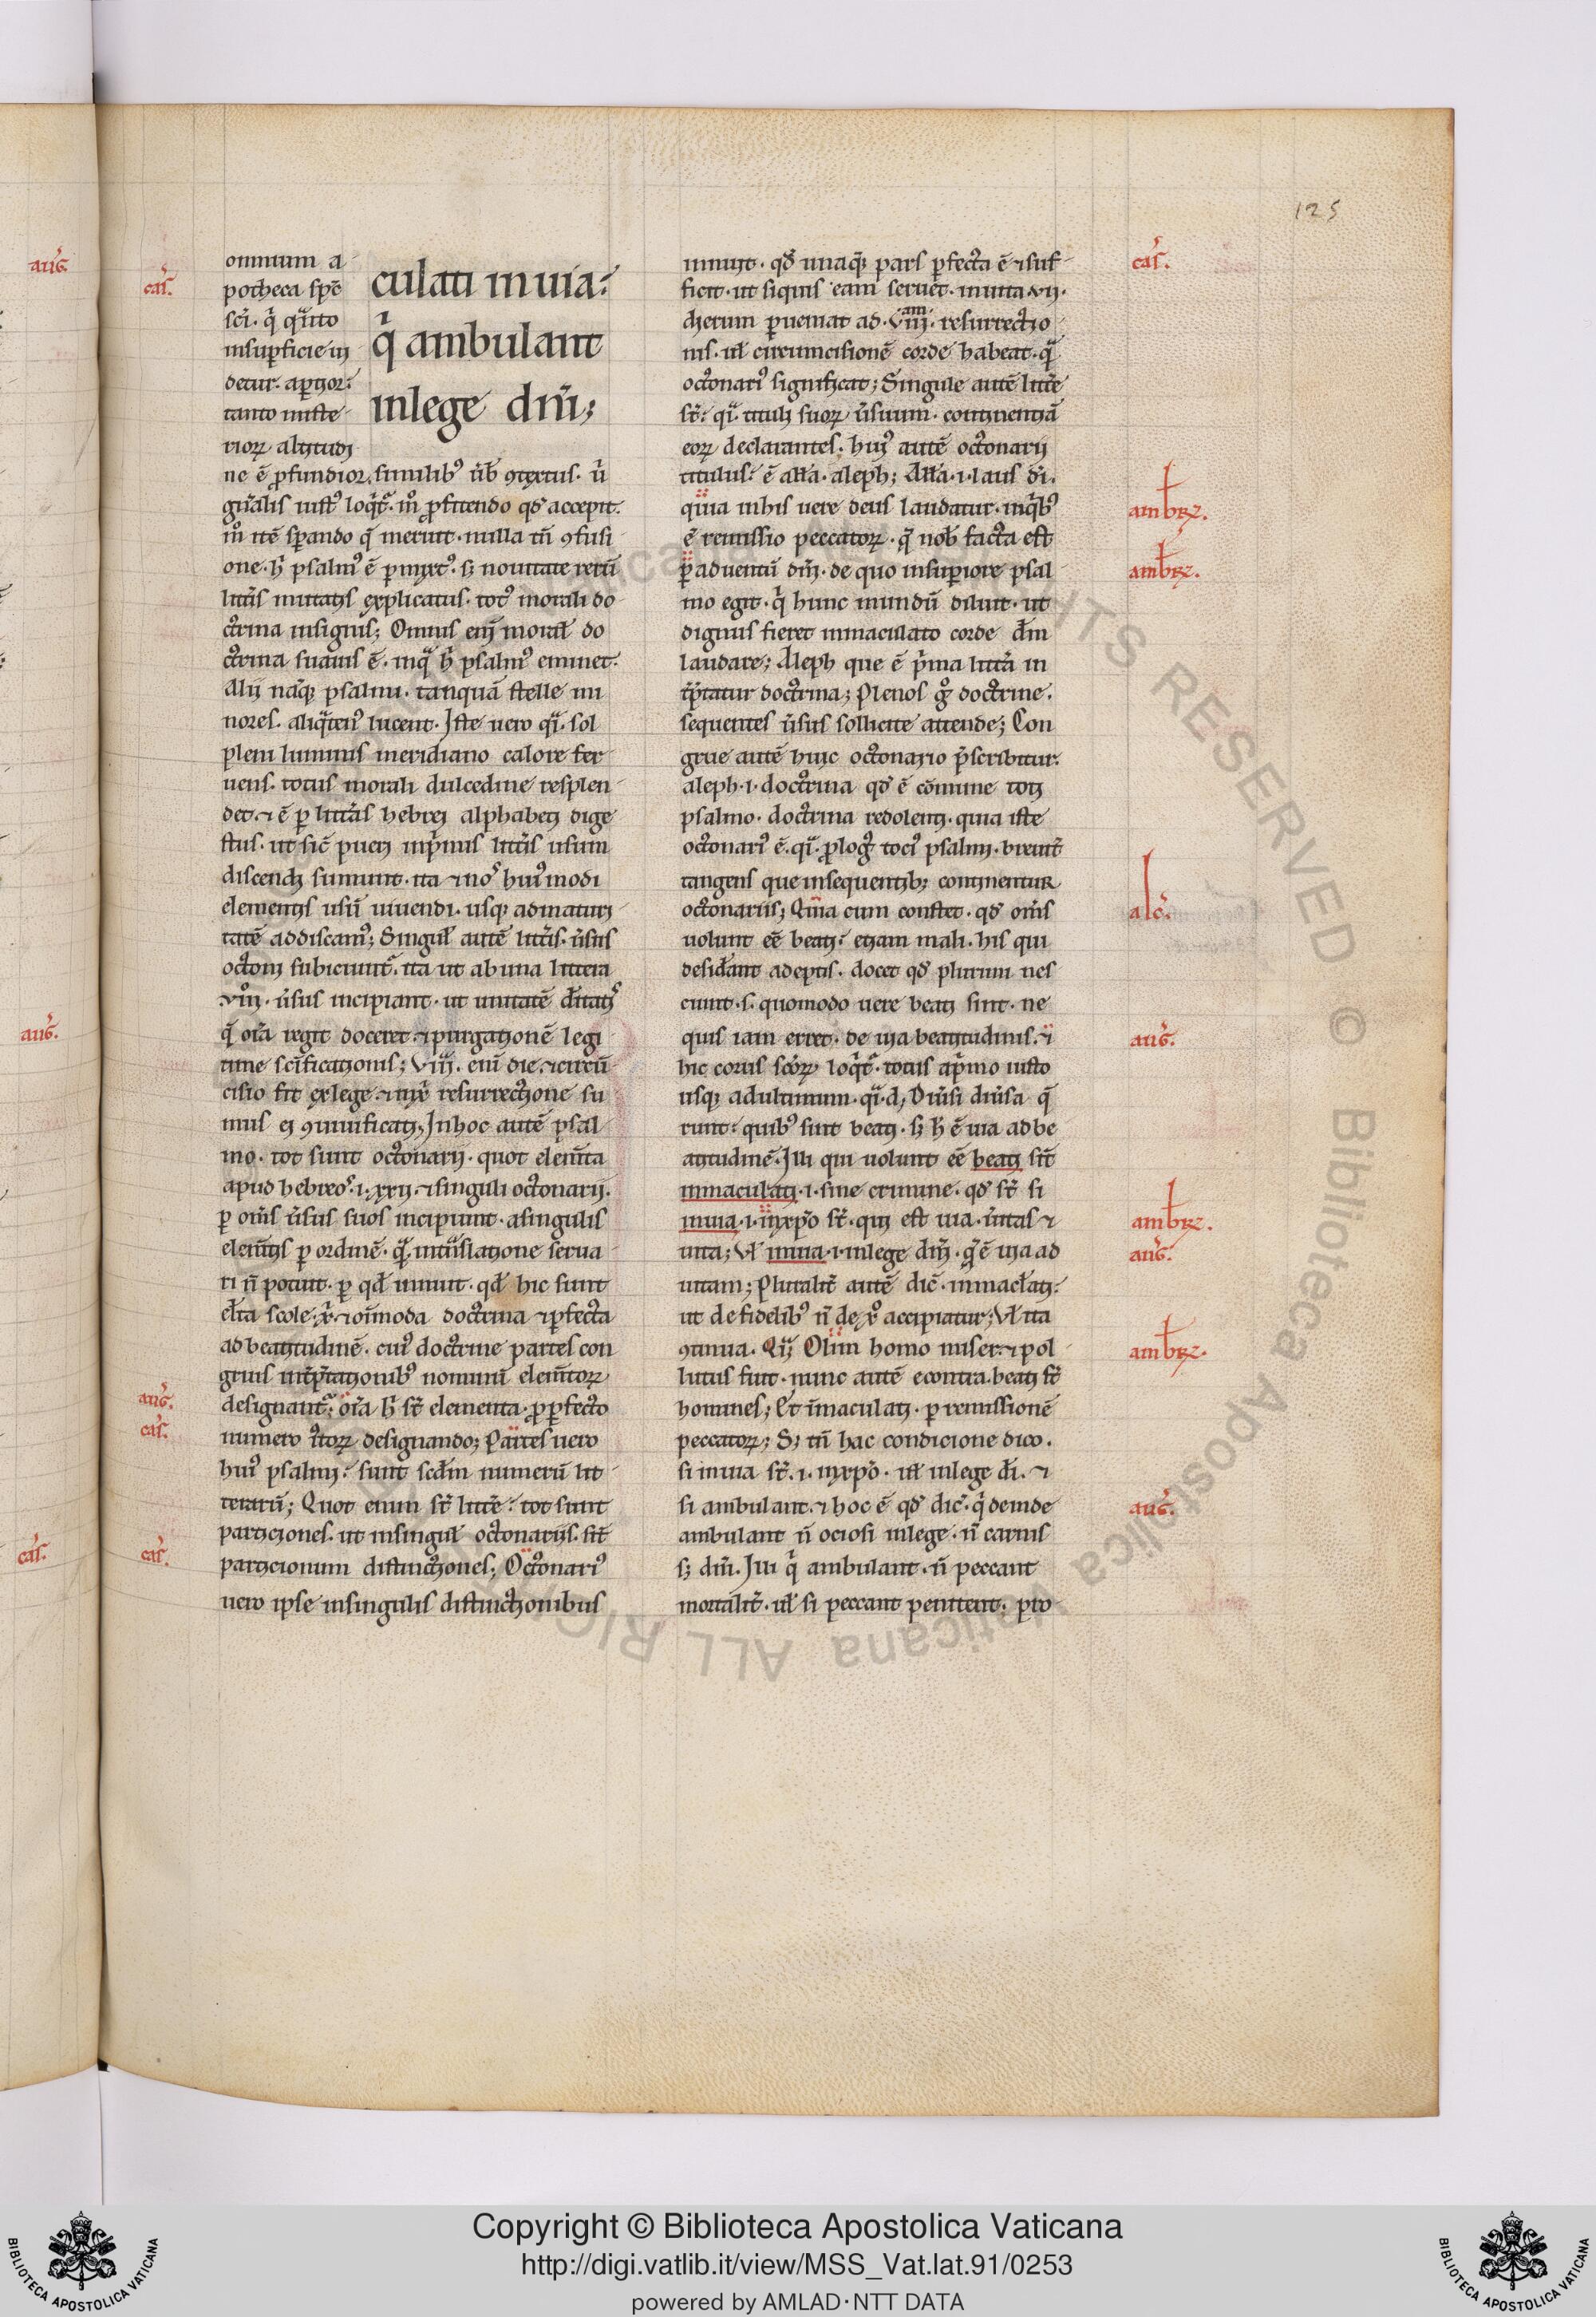 125
aug̃.
caſ.
omnium a-
potheca ſpc̄
ſci. q̇ q̃nto
inſuꝑficie ui
detur. aꝑtior:
tanto miſte-
rioꝝ altitudi
culati in uia:
q̇ ambulant
inlege dn̄i;
ne ē ꝓfundior. ſimilibꝰ ūb̄ ꝯtextus. ū
gn̄alis iuſtꝰ loq̇t᷑. m̊ ꝓfitendo qd̕ accepit.
m̊ itē ſꝑando q̄ meruit. nulla tn̄ ꝯfuſi
one. h̄ pſalmꝰ ē ꝑmixtꝰ. ſꝫ nouitate rerū
litt̃is mutatis explicatus. totꝰ morali do-
ctrina inſignis; Omnis eni᷑ moral̕ do
ctrina ſuauis ē. inq̃ h̄ pſalmꝰ eminet.
Alij naq̃ꝫ pſalmi. tanquā ſtelle mi
nores. aliq̃tenꝰ lucent. Iſte uero qͣi. ſol
pleni luminis meridiano calore fer
uens. totus morali dulcedine reſplen-
det. ⁊ ē ꝑ litt̃as hebrei alphabeti dige
ſtus. ut ſic̄ pueri inp̃mis litt̃is uſum
diſcendi ſumunt. ita ⁊ noſ huꝰmodi
elementis uſū uiuendi. uſqꝫ admaturi
tatē addiſcamꝰ; Singul̕ autē litt̃is. ūſus
octoni ſubiciunt᷑. ita ut ab una littera
viijͦ. ūſus incipiant. ut unitatē d̄itatiſ
q̄ oīa regit doceret. ⁊ purgationē legi
time ſcīficationis; Viijͣ. enī die. ⁊ circū
ciſio fit exlege. ⁊ inxp̄ reſurrectione ſu
mus ei ꝯuiuificati. Inhoc autē pſal-
mo. tot ſunt octonarij. quot elem̄ta
apud hebreoſ. i. xxij. ⁊ ſinguli octonarij.
ꝑ om̄s ūſus ſuos incipiunt. aſingulis
elem̄tis ꝑ ordinē. q̃. int̃nſlatione ſerua-
ri n̄ potuit. ꝑ qd̕ innuit. qd̕ hic ſunt
el̄ta ſcole. xp̄i. ⁊ oīmoda doctrina ⁊ ꝑfecta
ad beatitudinē. cuiꝰ doctrine partes con
gruis int̃p̃tationibꝰ nominū elem̄toꝝ
deſignant᷑; oīa h̄ ſt̄ elementa. ꝓ ꝑfecto
numero ĩtoꝝ deſignando; Partes uero
huiꝰ pſalmi: ſunt ſcd̄m numerū lit-
terarū; Quot enim ſt̄ litt̃e: tot ſunt
particiones. ut inſingul̕ octonarijs. ſīt
particionum diſtinctiones; Octonariꝰ
uero ipſe inſingulis diſtinctionibus
aug̃.
aug̃.
caſ.
caſ.
caſ.
innuit. qd̕ unaq̃ꝫ pars ꝑfecta ē ⁊ ſuf-
ficit. ut ſiquis eam ſeruet. inuita vij.
dierum ꝑueniat ad. viijam. reſurrectio-
nis. ul̕ circumciſionē corde habeat. q̃
octonariꝰ ſignificat; Singule autē litt̃e
ſt̄: qͣi. tituli ſuoꝝ ūſuum. continentiā
eoꝝ declarantes. huiꝰ autē octonarij
titulus: ē all̕a. aleph; All̕a. i. laus d̄i.
quia inhis uere deus laudatur. inq̇bꝰ
ē remiſſio peccatoꝝ. q̄ nob̄ facta eſt
ꝑ aduentū dn̄i. de quo inſuꝑiore pſal
mo egit. q̇ hunc mundū diluit. ut
dignus fieret inmaculato corde d̄m
laudare; Aleph que ē p̃ma litt̃a in
t̃p̃tatur doctrina; Plenos g̊ doctrine.
ſequentes ūſus ſollicite attende; Con
grue autē huic octonario p̃ſcribitur.
aleph. i. doctrina qd̕ ē cōmune toti
pſalmo. doctrina redolenti. quia iſte
octonariꝰ ē. qͣi. ꝓlogꝰ totiꝰ pſalmi. breuit᷑
tangens que inſequentibꝫ continentur
octonariis; Quia cum conſtet. qd̕ om̄s
uolunt eē beati: etiam mali. his qui
deſid̃ant adeptis. docet qd̕ plurimi neſ
ciunt. ſ. quomodo uere beati ſint. ne
quis iam erret. de uia beatitudinis. ⁊
hic corus ſc̄oꝝ loq̇t᷑. totus ap̃mo iuſto
uſqꝫ adultimum. qͣi. d; Diũſi diũſa q̄
runt: quibꝰ ſint beati. ſꝫ h̄ ē uia ad be
atitudinē. Illi qui uolunt eē beati ſīt
inmaculati. i. ſine crimine. qd̕ ſt̄ ſi
inuia. i. inxp̄o ſt̄. qui eſt uia. ũitas ⁊
uita; Vl̕ inuia. i. inlege dn̄i. q̄ ē uia ad
uitam; Pluralit᷑ autē dic̄. inmacl̕ati:
ut de fidelibꝰ n̄ de xp̄o accipiatur; Vl̕ ita
ꝯtinua. Qͣi Olim homo miſer. ⁊ pol-
lutus fuit. nunc autē econtra. beati ſt̄
homines; Et īmaculati. ꝑ remiſſionē
peccatoꝝ; Sꝫ tn̄ hac condicione dico.
ſi inuia ſt̄. i. inxp̄o. ul̕ inlege d̄i. ⁊
ſi ambulant. ⁊ hoc ē qd̕ dic̄. q̇ deinde
ambulant n̄ ocioſi inlege. n̄ carnis
ſꝫ dn̄i. Illi q̇ ambulant. n̄ peccant
mortalit᷑. ul̕ ſi peccant penitent. pro-
caſ.
ambꝝ.
ambꝝ.
alc̄.
aug̃.
ambꝝ.
aug̃.
ambꝝ.
aug̃.
Copyright © Biblioteca Apostolica Vaticana
http://digi.vatlib.it/view/MSS_Vat.lat.91/0253
powered by AMLAD·NTT DATA
BIBLIOTECA APOSTOLICA VATICANA
BIBLIOTECA APOSTOLICA VATICANA
© Biblioteca Apostolica Vaticana ALL RIGHTS RESERVED